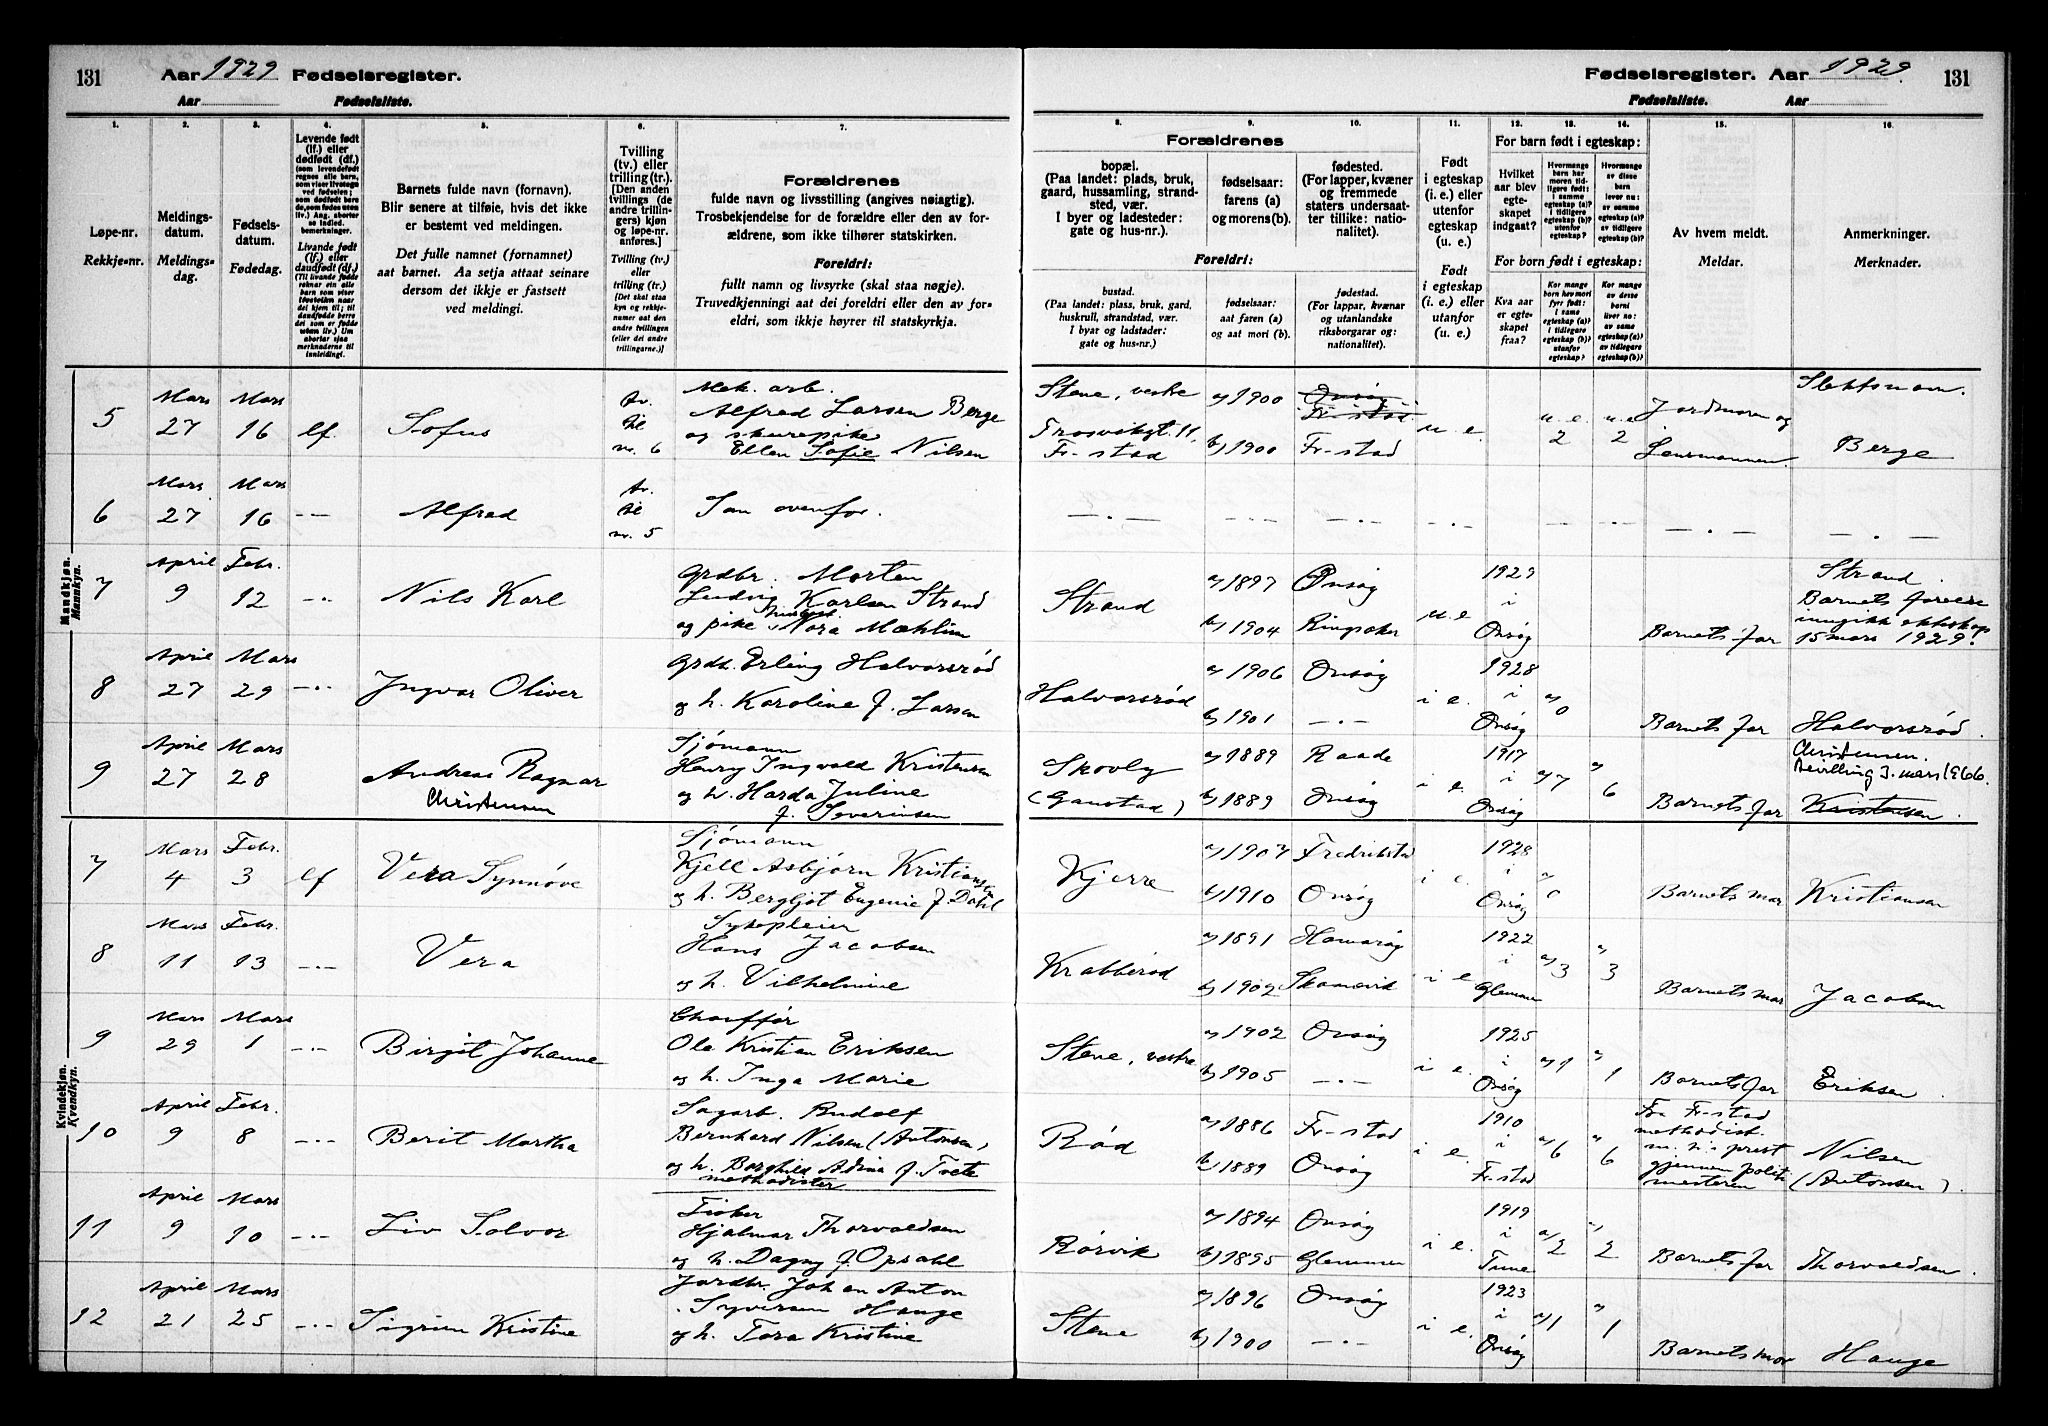 131 Aar 1929 Fødselsregister.
Aar Fødselsliste.
Fødselsregister. Aar 1929. 131
Fødselsliste. Aar
1. 2. 3. 4. 5. 6. 7. 8. 9. 10. 11. 12. 13. 14. 15. 16.
Løpe-nr.
Rekkje-nr.
Meldings-
datum.
Meldings-
dag.
Fødsels-
datum.
Fødedag.
Levende født
(lf.) eller
dødfødt (df.)
Livande født
(lf.) eller
daudfødt (df.)
Barnets fulde navn (fornavn).
Blir senere at tilføie, hvis det ikke
er bestemt ved meldingen.
Det fulle namnet (fornamnet)
aat barnet. Aa setja attaat seinare
dersom det ikkje er fastsett
ved meldingi.
Tvilling
(tv.) eller
trilling (tr.).
[Den anden
tvillings (de
andre trillin-
gers) kjøn
og løpe-nr.
anføres.]
Tvilling (tv.)
eller
trilling (tr.)
[Det skal staa
kyn og rekkje-
numer aat den
andre tvillingen
(eller dei andre
trillingarne.)]
Forældrenes
fulde navn og livsstilling (angives nøiagtig).
Trosbekjendelse for de forældre eller den av for-
ældrene, som ikke tilhører statskirken.
Foreldri:
fullt namn og livsyrke (skal staa nøgje).
Truvedkjenningi aat dei foreldri eller den av for-
eldri, som ikkje høyrer til statskyrkja.
Forældrenes
bopæl.
(Paa landet: plads, bruk,
gaard, hussamling, strand-
sted, vær.
I byer og ladesteder:
gate og hus-nr.).
fødselsaar:
farens (a)
og morens (b).
fødested.
(For lapper, kvæner
og fremmede
staters undersaat-
ter tillike: natio-
nalitet).
Foreldri:
bustad.
(Paa landet: plass, bruk, gard,
huskrull, strandstad, vær.
I byar og ladstader:
gate og hus-nr.)
fødselsaar:
aat faren (a)
og aat mori (b).
fødestad.
(For lappar, kvænar
og utanlandske
riksborgarar og:
nationalitet).
Født
i egteskap
(i. e.) eller
utenfor
egteskap
(u. e.)
Født
i egteskap
(i. e.) eller
utanfor
(u. e.)
For barn født i egteskap:
Hvilket
aar blev
egte-
skapet
indgaat?
For born født i egteskap:
Kva aar
er egte-
skapet
fraa?
Av hvem meldt.
Meldar.
Anmerkninger.
Merknader.
Mandkjøn.
Mannkyn.
5 Mars 27 Mars 16 lf. Sofus tv. til nr. 6
Mek. arb.
Alfred Larsen Berge
og skurepike
Ellen Sofie Nilsen
Stene, vestre
Trosvikgt. 11,
Fr-stad
a) 1900 Onsøy Fr-stad
b) 1900 Fr-stad
u. e. u. e. 2 u. e. 2 Jordmoren og
Lensmannen. Slektsnavn.
Berge
6 Mars 27 Mars 16 -"- Alfred tv. til nr. 5
Som ovenfor.
7 April 9 Febr. 12 -"- Nils Karl
Grdbr. Morten
Ludvig Karlsen Strand
og pike Nora Mæhlum
Strand
a) 1897 Onsøy
b) 1904 Ringsaker
u. e 1929 i Onsøy
Barnets far
Strand.
Barnets foreldre
inngikk ekteskap
15 mars 1929.
8 April 27 Mars 29 -"- Ingvar Oliver
Grdb. Erling Halvorsrød
og h. Karoline f. Larsen
Halvorsrød
a) 1906 Onsøy
b) 1901 -"-
i e. 1928 i Onsøy a) 0
Barnets far Halvorsrød.
9 April 27 Mars 28 Andreas Ragnar
Christensen
Sjømann
Henry Ingvald Kristensen
og h. Harda Juline
f. Severinsen
Skovly
(Gaustad)
a) 1889 Raade
b) 1889 Onsøy
i e. 1917 i Onsøy a) 7 " 6
Barnets far
Christensen.
Bevilling 3. mars 1966.
Kristensen.
Kvindekjøn.
Kvendkyn.
7 Mars 4 Febr. 3 lf Vera Synnøve
Sjømann
Kjell Asbjørn Kristiansen
og h. Bergljot Eugenie f. Dahl
Kjerre
a) 1907 Fredrikstad
b) 1910 Onsøy
i e. 1928 i Onsøy a) 0
Barnets mor Kristiansen
8 Mars 11 Febr. 13 -"- Vera
Sykepleier
Hans Jacobsen
og h. Vilhelmine
Krabberød
a) 1891 Hamarøy
b) 1902
i e. 1922 i Glemmen a) 3 " 3
Barnets mor Jacobsen
9 Mars 29 Mars 1 -"- Birgit Johanne
Chauffør
Ole Kristian Eriksen
og h. Inga Marie
Stene, vestre
a) 1902 Onsøy
b) 1905 -"-
i e. 1925 i Onsøy a) 1 " 1
Barnets far Eriksen.
10 April 9 Febr. 8 -"- Berit Martha
Sagarb. Rudolf
Bernhard Nilsen (Antonsen)
og h. Borghild Adina f. Tvete
methodister
Rød
a) 1886 Fr-stad
b) 1889 Onsøy
i e. 1910 i Fr-stad a) 6 " 6
Fra Fr-stad
methodist-
m. h:s prest
gjennem politi-
mesteren
Nilsen
(Antonsen).
11 April 9 Mars 10 -"- Liv Solvor
Fisker
Hjalmar Thorvaldsen
og h. Dagny f. Opsahl
Rørvik
a) 1894 Onsøy
b) 1895 Glemmen
i e. 1919 i Tune a) 2 " 2
Barnets far Thorvaldsen.
12 April 21 Mars 25 -"- Sigrun Kristine
Jordbr. Johan Anton
Syversen Hauge
og h. Tora Kristine
Stene
a) 1896 Onsøy
b) 1900 -"-
i e. 1923 i Onsøy a) 1 " 1
Barnets mor Hauge